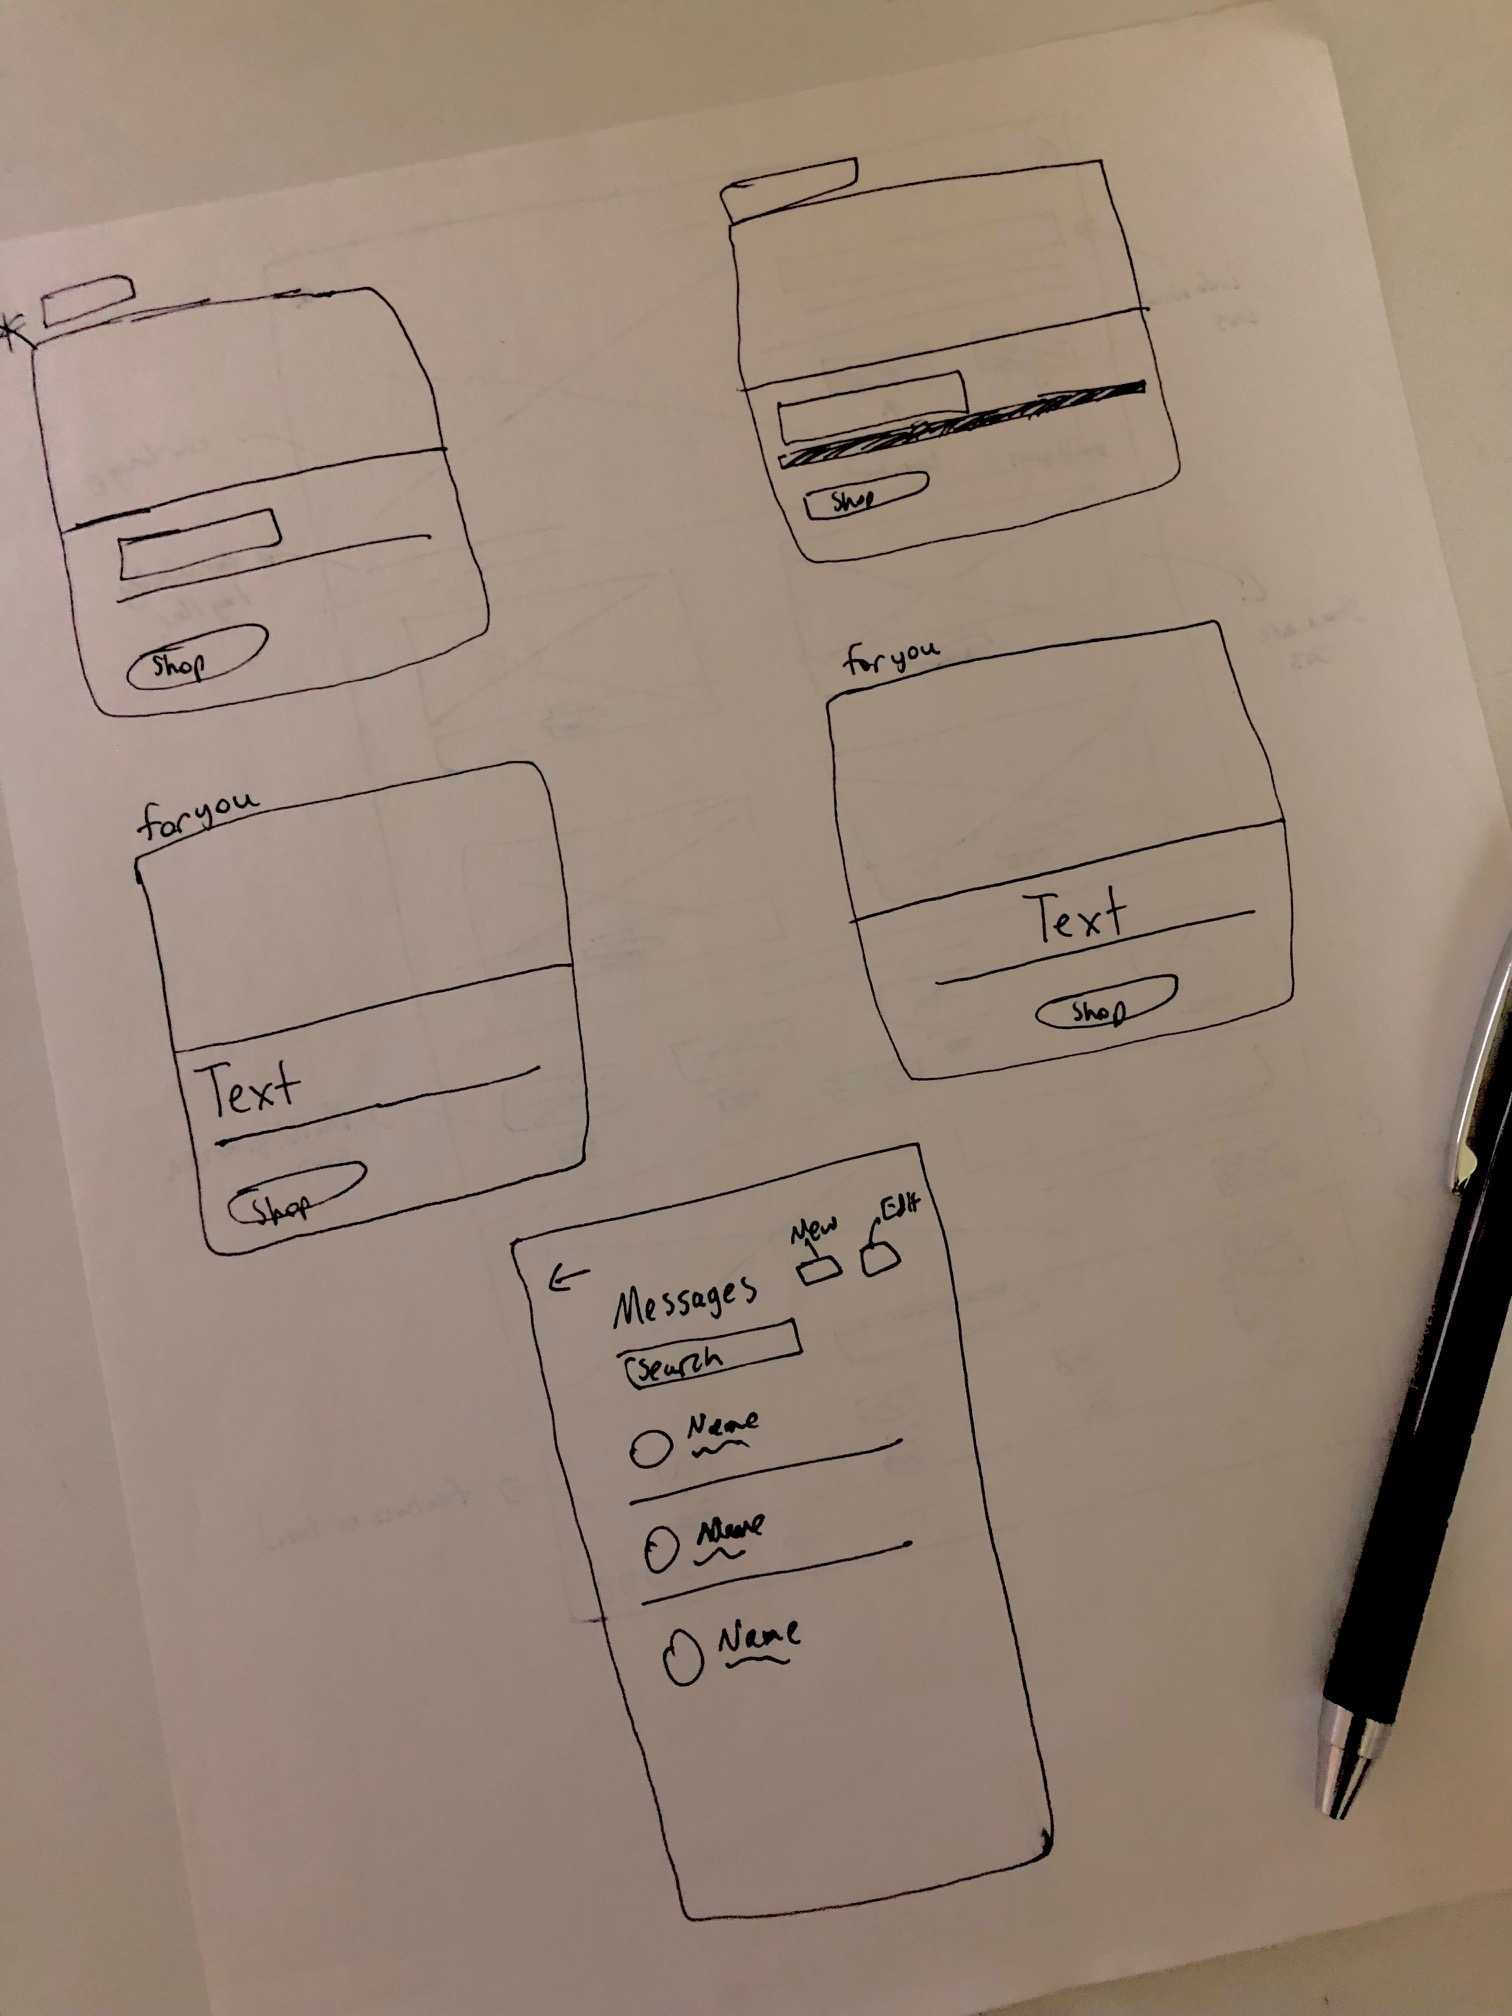 *
Shop
Shop
for you
Text
Shop
for you
Text
Shop
New
Edit
←
Messages
Search
Name
Name
Name